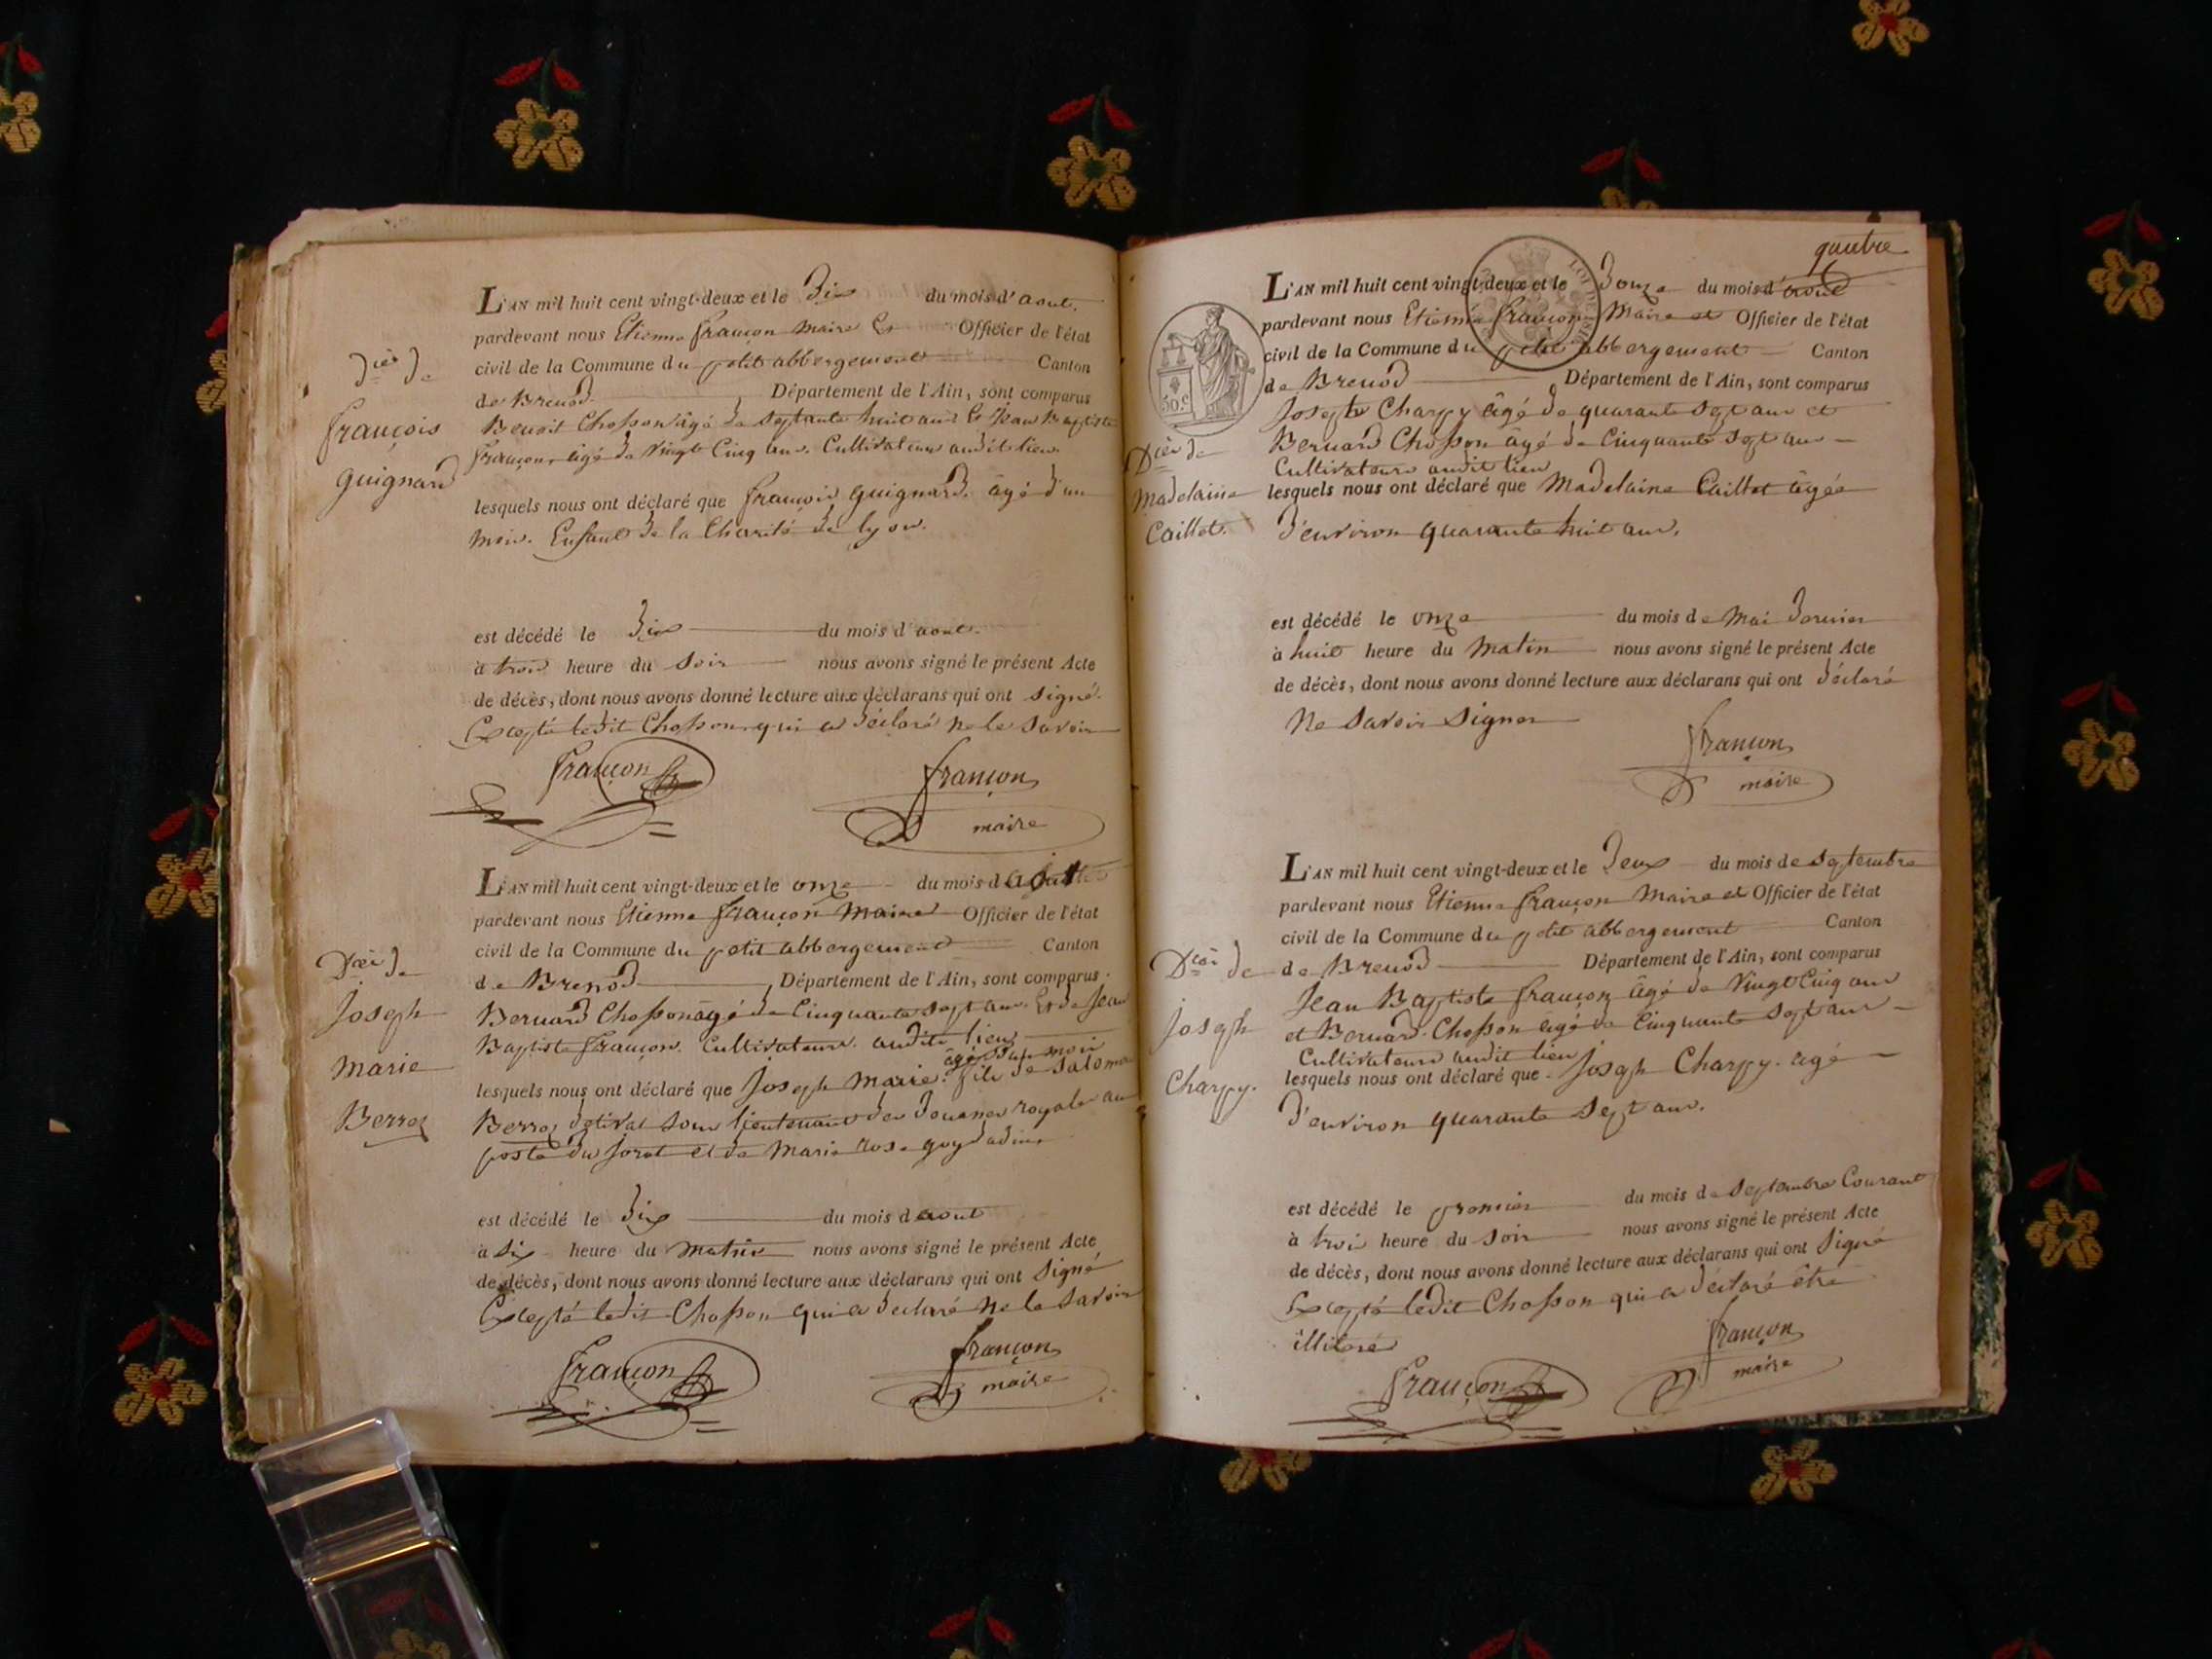 L'AN mil huit cent vingt-deux et le Dix du mois d'aout.
pardevant nous Etienne françon maire Et Officier de l'état
civil de la Commune du petit abbergement Canton
de Brenod Département de l'Ain, sont comparus
Benoit Chosson âgé de septante huit ans Et Jean Baptiste
françon, âgé de vingt Cinq ans. Cultivateurs audit lieu.
lesquels nous ont déclaré que françois guignard. âgé d'un
mois. Enfant de la Charité de lyon.
Dcès de
françois
guignard
est décédé le Dix du mois d'aout.
à trois heure du soir nous avons signé le présent Acte
de décès, dont nous avons donné lecture aux déclarans qui ont signé.
Excepté ledit Chosson qui a déclaré ne le savoir
françon
françon
maire
L'AN mil huit cent vingt-deux et le onze du mois d
pardevant nous Etienne françon Maire Officier de l'état
civil de la Commune du petit abbergement Canton
de Brenod Département de l'Ain, sont comparus.
Bernard Chosson âgé de Cinquante sept ans. Et de Jean
Baptiste françon. Cultivateurs. audit lieu
âgé d'un mois
lesquels nous ont déclaré que Joseph Marie. fils de Salomon
Berroz sous lieutenant des Douanes royales au
poste du jorat et de Marie rose
Dcès de
Joseph
Marie
Berroz
est décédé le Dix du mois d aout
à Six heure du matin nous avons signé le présent Acte
de décès, dont nous avons donné lecture aux déclarans qui ont Signé
Excepté ledit Chosson qui a déclaré ne le savoir
françon
françon
maire
quatre
L'AN mil huit cent vingt-deux et le Douze du mois d'aout
pardevant nous Etienne françon Maire et Officier de l'état
civil de la Commune du petit abbergement Canton
de Brenod Département de l'Ain, sont comparus
50.C
Joseph Charpy âgé de quarante sept ans et
Bernard Chosson âgé de Cinquante sept ans
Cultivateurs audit lieu
lesquels nous ont déclaré que Madelaine Caillet âgée
d'environ quarante huit ans.
Dcès de
Madelaine
Caillet.
est décédé le onze du mois de Mai dernier
à huit heure du Matin nous avons signé le présent Acte
de décès, dont nous avons donné lecture aux déclarans qui ont déclaré
Ne Savoir Signer
françon
maire
L'AN mil huit cent vingt-deux et le Deux du mois de septembre
pardevant nous Etienne françon Maire et Officier de l'état
civil de la Commune du petit abbergement Canton
de Brenod Département de l'Ain, sont comparus
Jean Baptiste françon âgé de Vingt Cinq ans
et Bernard Chosson âgé de Cinquante Sept ans
Cultivateurs audit lieu
lesquels nous ont déclaré que Joseph Charpy. âgé
d'environ quarante Sept ans.
Dcès de
Joseph
Charpy.
est décédé le premier du mois de septembre Courant
à trois heure du soir nous avons signé le présent Acte
de décès, dont nous avons donné lecture aux déclarans qui ont Signé
Excepté ledit Chosson qui a déclaré être
illiteré
françon
françon
maire